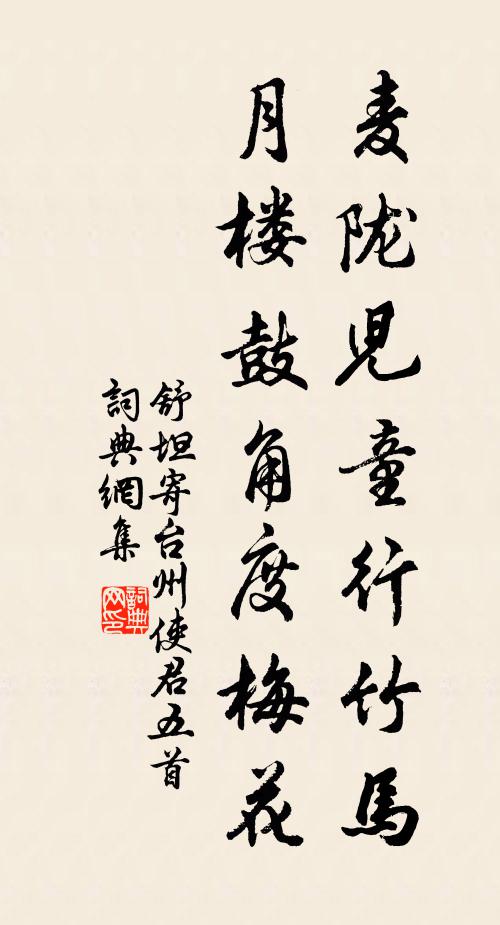 麦陇児童行竹馬
月楼鼓角度梅花
舒坦寄台州使君五首
詞典網集
詞典
网印